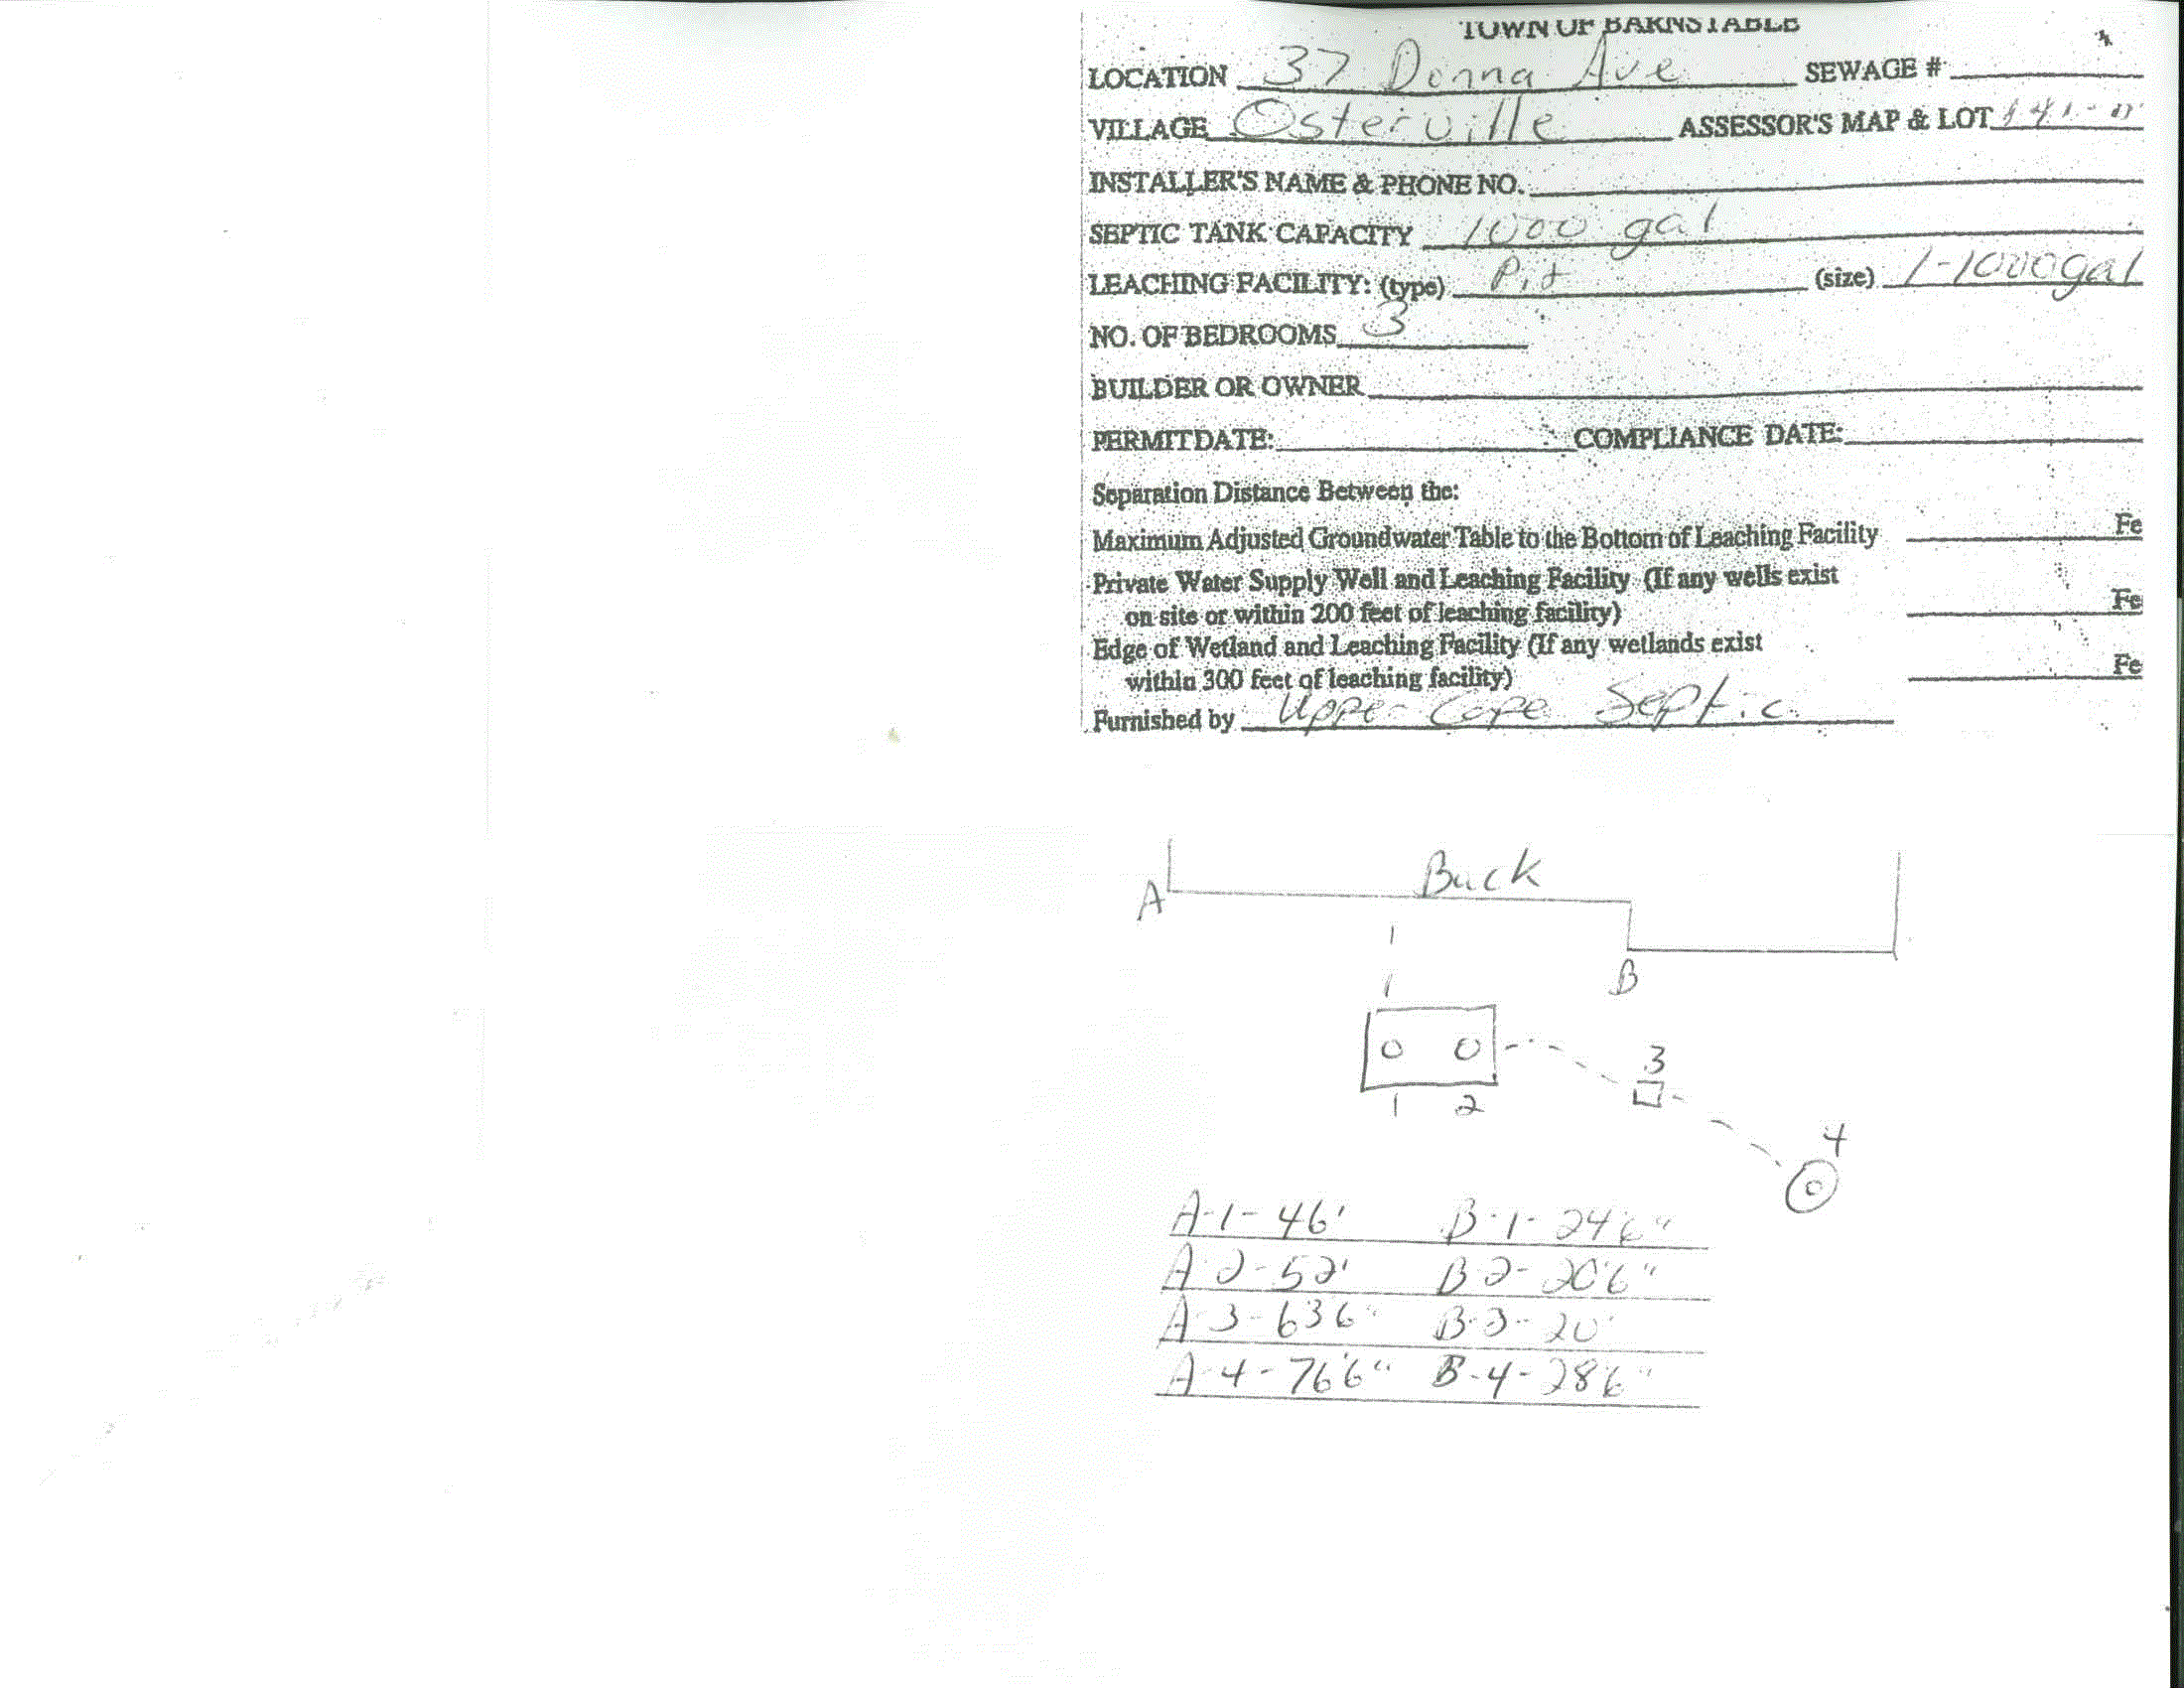 TOWN OF BARNSTABLE
LOCATION 37 Donna Ave SEWAGE #
VILLAGE Osterville ASSESSOR'S MAP & LOT 141-
INSTALLER'S NAME & PHONE NO.
SEPTIC TANK CAPACITY 1000 gal
LEACHING FACILITY: (type) Pit (size) 1-1000gal
NO. OF BEDROOMS 3
BUILDER OR OWNER
PERMITDATE: COMPLIANCE DATE:
Separation Distance Between the:
Maximum Adjusted Groundwater Table to the Bottom of Leaching Facility Fe
Private Water Supply Well and Leaching Facility (If any wells exist
on site or within 200 feet of leaching facility) Fe
Edge of Wetland and Leaching Facility (If any wetlands exist
within 300 feet of leaching facility) Fe
Furnished by Upper Cape Septic
Back
A
B
3
1 2
4
A-1-46' B-1-24'6"
A-2-52' B-2-20'6"
A-3-63'6" B-3-20'
A-4-76'6" B-4-28'6"